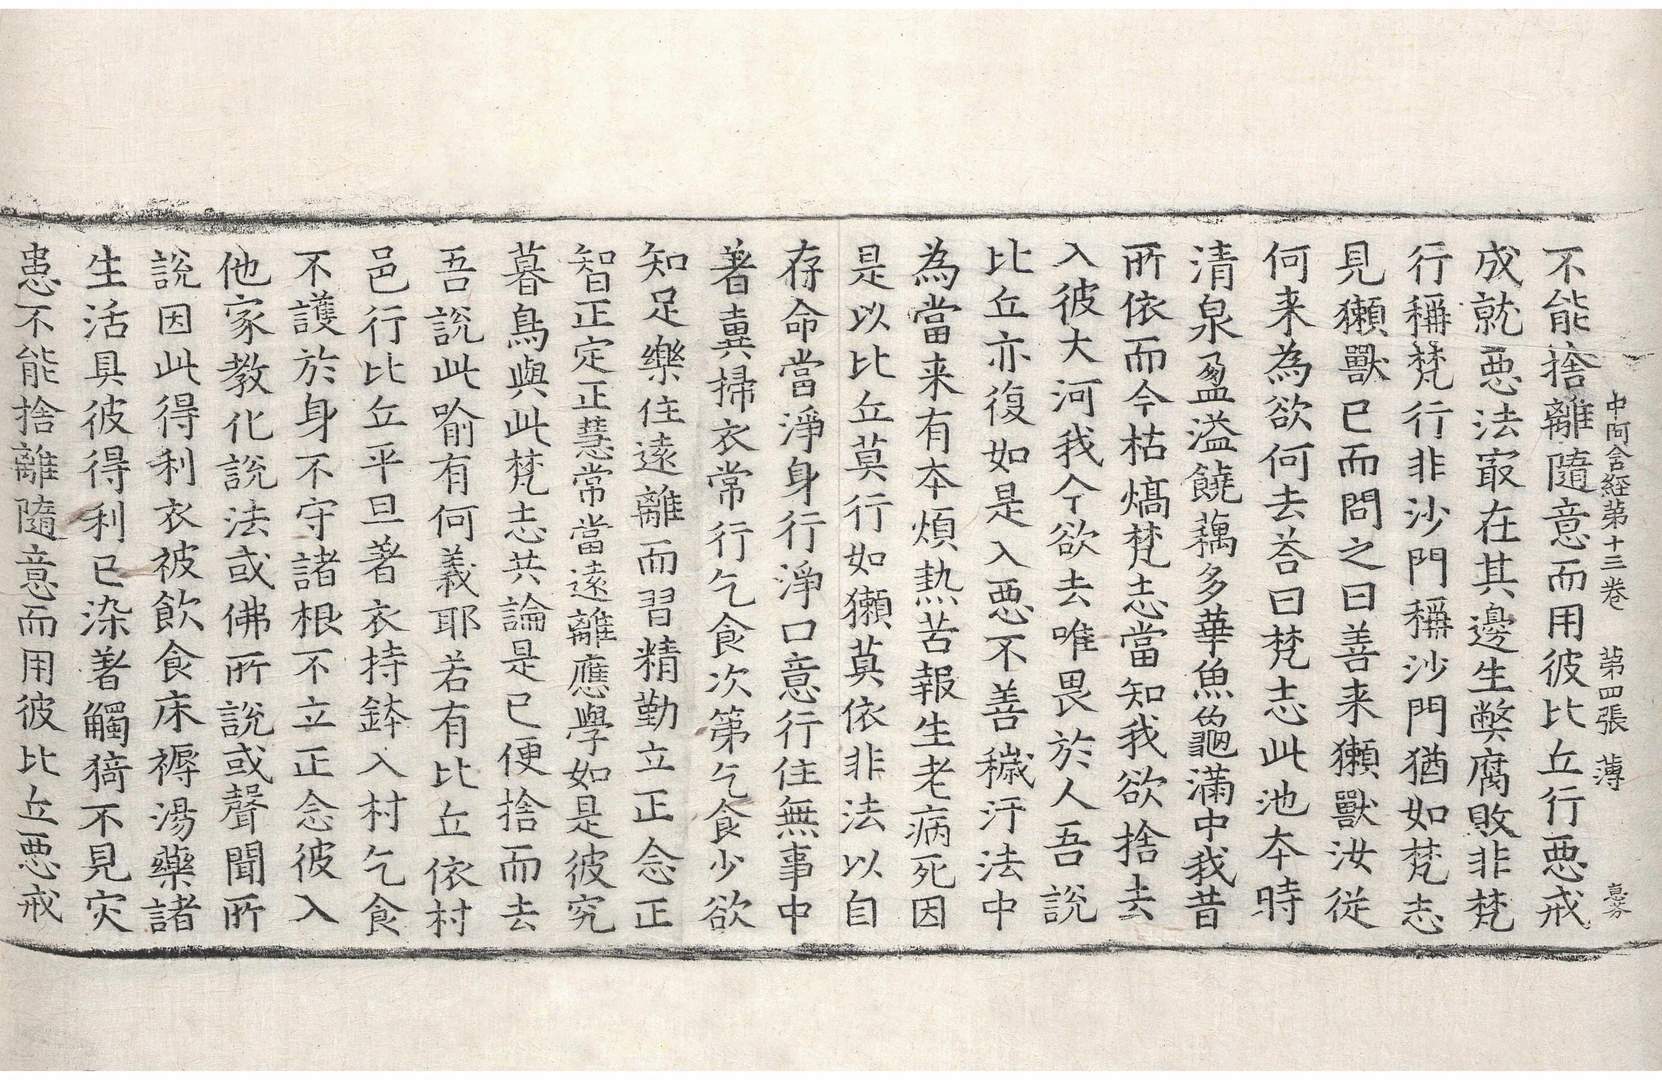 中阿含經第十三卷 第四張 薄
不能捨離隨意而用彼比丘行悪戒
成就悪法㝡在其邊生弊腐敗非梵
行稱梵行非沙門稱沙門猶如梵志
見獺獸已而問之曰善来獺獸汝從
何来為欲何去荅曰梵志此池夲時
清泉盈溢饒藕多華魚龜滿中我昔
所依而今枯熇梵志當知我欲捨去
入彼大河我今欲去唯畏於人吾說
比丘亦復如是入悪不善穢汙法中
為當来有夲煩熱苦報生老病死因
是以比丘莫行如獺莫依非法以自
存命當淨身行淨口意行住無事中
著糞掃衣常行乞食次第乞食少欲
知足樂住遠離而習精勤立正念正
智正定正慧常當遠離應學如是彼究
暮鳥與此梵志共論是已便捨而去
吾說此喻有何義耶若有比丘依村
邑行比丘平旦著衣持鉢入村乞食
不護於身不守諸根不立正念彼入
他家教化說法或佛所說或聲聞所
說因此得利衣被飲食床褥湯藥諸
生活具彼得利已染著觸猗不見灾
患不能捨離隨意而用彼比丘悪戒